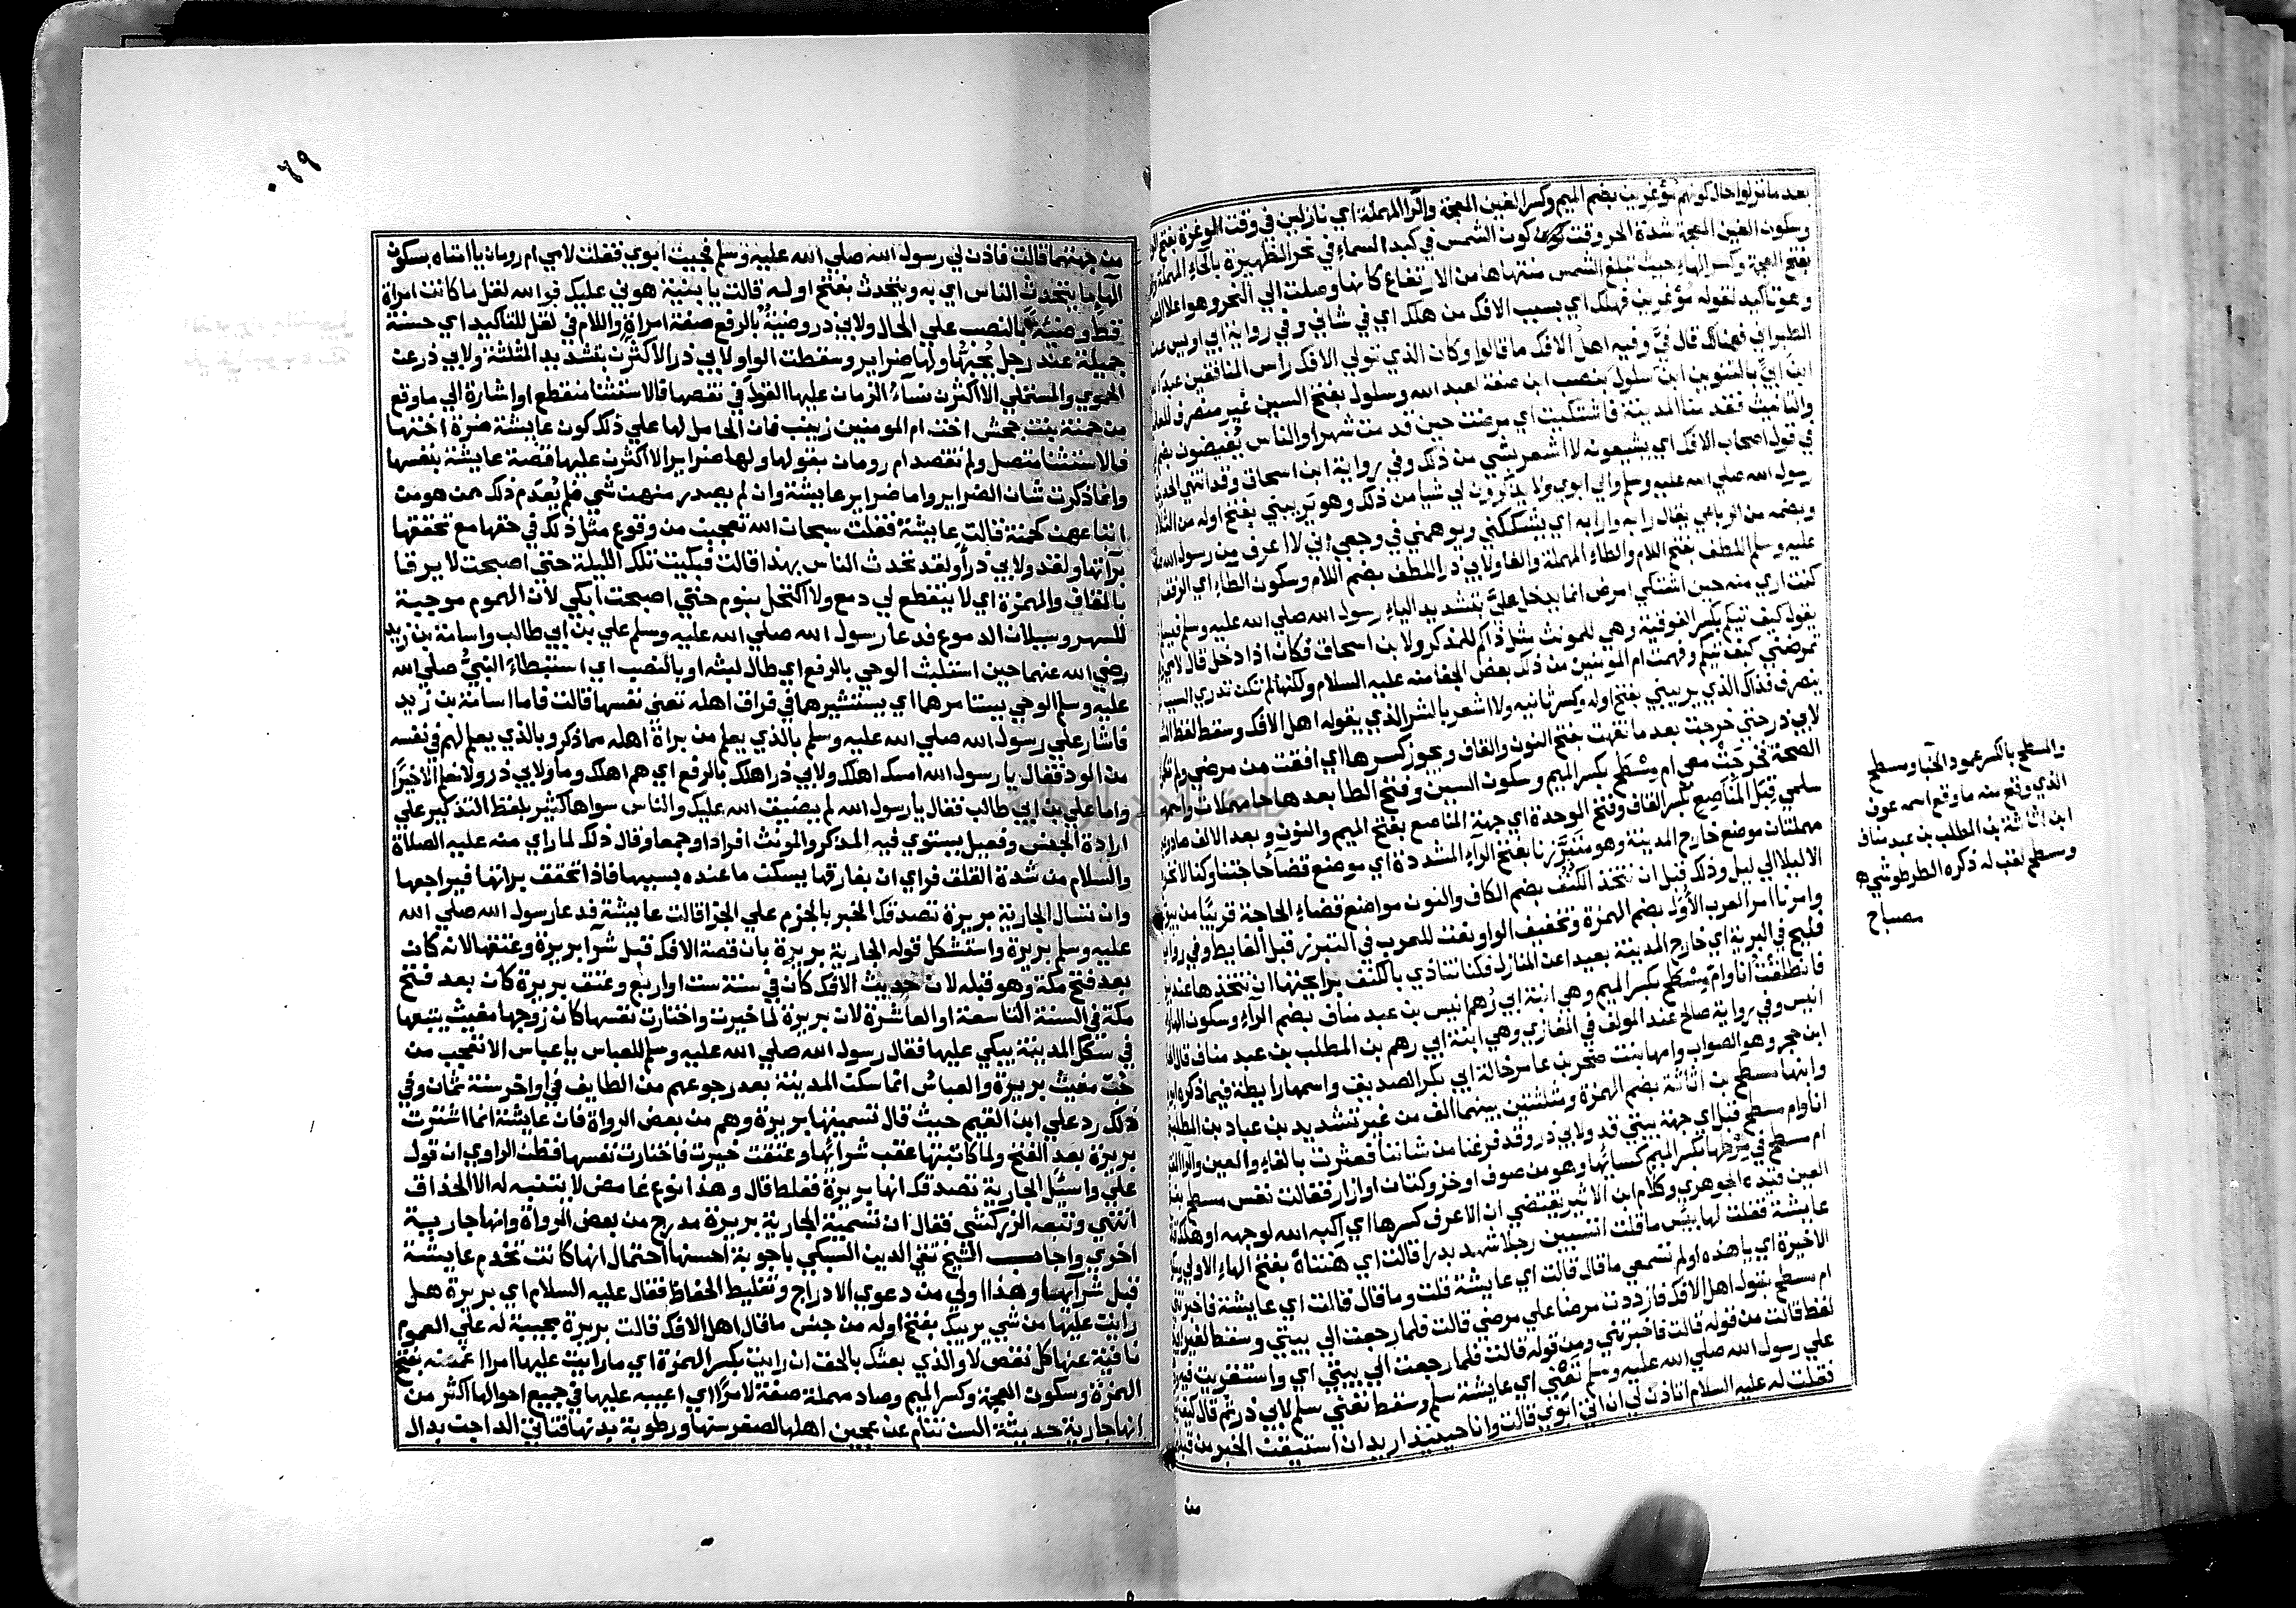 بعد ما نزلوا حال كونهم موغرين بضم الميم وكسر الغين المعجمة والراء المهملة اي نازلين في وقت الوغرة بفتح
وسكون الغين المعجمة شدة الحر وقت كون الشمس في كبد السماء في نحر الظهيرة بالحاء المهملة
بفتح المعجمة وكسر الهاء حيث تبلغ الشمس منتهاها من الارتفاع كانها وصلت الي النحر وهو اعلا
وهو تاكيد لقوله موغرين فهلك اي بسبب الافك من هلك اي في شاني وفي رواية ابي اويس عند
الطبراني فهنالك قال فيَّ وفيه اهل الافك ما قالوا وكان الذي تولي الافك راس المنافقين عبد
ابن ابيّ بالتنوين ابن سلول بنصب ابن صفة لعبد الله وسلول بفتح السين غير منصرف
والتانيث فقدمنا المدينة فاشتكيت اي مرضت حين قدمت شهرا والناس يُفيضون
في قول اصحاب الافك اي يشيعونه لا اشعر بشي من ذلك وفي رواية ابن اسحاق وقد انتهي الحديث
رسول الله صلي الله عليه وسلم والي ابوي ولا يذكرون لي شيا من ذلك وهو يَريبني بفتح اوله من
وبضمه من الرباعي يقال رابه وارابه اي يشككني ويوهمني في وجعي اني لا اعرف من رسول الله
عليه وسلم اللطف بفتح اللام والطاء المهملة والفاء ولابي ذر اللطف بضم اللام وسكون الطاء اي الرفق
كنت اري منه حين اشتكي امرض انما يدخل عليَّ بتشديد الياء رسول الله صلي الله عليه وسلم
يقول كيف تيكم بكسر الفوقية وهي للمونث مثل ذاكم للمذكر ولابن اسحاق فكان اذا دخل قال
تمرضني كيف تيكم وفهمت ام المومنين من ذلك بعض الجفا منه عليه السلام ولكنها لم تكن تدري
ينصرف فذاك الذي يريبني بفتح اوله وكسر ثانيه ولا اشعر بالشر الذي يقوله اهل الافك وسقط لفظ
لابي ذر حتي خرجت بعد ما نقهت بفتح النون والقاف ويجوز كسرها اي افقت من مرضي ولم
الصحة فخرجَتْ معي ام مِسْطَح بكسر الميم وسكون السين وفتح الطا بعدها حا مهملات
سلمي قِبَل المَناصِع بكسر القاف وفتح الموحدة اي جهة المناصع بفتح الميم والنون وبعد الالف
مهملتان موضع خارج المدينة وهو متبرَّزنا بفتح الراء المشددة اي موضع قضا حاجتنا وكنا لا
الا ليلا الي ليل وذلك قبل ان نتخذ الكنُف بضم الكاف والنون مواضع قضاء الحاجة قريبًا من
وامرنا امر العرب الأُوَل بضم الهمزة وتخفيف الواو نعت للعرب في التبرز قبل الغايط وفي
فليح في البرية اي خارج المدينة بعيدا عن المنازل فكنا نتاذي بالكنف برايحتها ان نتخذها عند
فانطلقتُ انا وام مِسْطح بكسر الميم وهي ابنة ابي رُهم انيس بن عبد مناف بضم الراء وسكون
انيس وفي رواية صالح عند المولف في المغازي وهي ابنة ابي رهم بن المطلب بن عبد مناف قال
ابن حجر وهو الصواب وامها بنت صخر بن عامر خالة ابي بكر الصديق واسمها رايطة فيما ذكره
وابنها مسطح بن اثاثة بضم الهمزة ومثلثتين بينهما الف من غير تشديد بن عباد بن المطلب
انا وام مسطح قبل اي جهة بيتي قد ولابي ذر وقد فرغنا من شاننا فعثرت بالفاء والعين
ام مسطح في مِرْطها بكسر الميم كسائها وهو من صوف او خز وكتان او ازار فقالت تعس مسطح
العين قيده الجوهري وكلام ابن الاثير يقتضي ان الاعرف كسرها اي اكبه الله لوجهه او هلك
عايشة فقلت لها بئس ما قلت اتسبين رجلا شهد بدرا قالت اي هنتاهْ بفتح الهاء الاولي
الاخيرة اي يا هذه اولم تسمعي ما قال قالت اي عايشة قلت وما قال قالت اي عايشة فاخبرتني
ام مسطح بقول اهل الافك فازددت مرضا علي مرضي قالت فلما رجعت الي بيتي وسقط لغير
لفظ قالت من قوله قالت فاخبرتني ومن قوله قالت فلما رجعت الي بيتي اي واستقريت
علي رسول الله صلي الله عليه وسلم تعني اي عايشة سلم وسقط تعني سلم لابي ذر ثم قال كيف
فقلت له عليه السلام اتاذن لي ان اتي ابويّ قالت وانا حينيذ اريد ان استيقن الخبر من
من
والمسطح بالكسر عمود الخبا ومسطح
الذي وقع منه ما وقع اسمه عوف
ابن اثاثة بن المطلب بن عبد مناف
ومسطح لقب له ذكره الطرطوشي ه
مصباح
من جهتهما قالت فاذن لي رسول الله صلي الله عليه وسلم فجيت ابوي فقلت لامي ام رومان يا امتاه بسكون
الهاء ما يتحدث الناس اي به ويتحدث بفتح اوله قالت يا بنية هوني عليك فوالله لقل ما كانت امراة
قط وضيئة بالنصب علي الحال ولابي ذر وضيئةٌ بالرفع صفة امراة واللام في لقل للتاكيد اي حسنة
جميلة عند رجل يُحبّها ولها ضراير وسقطت الواو لابي ذر الا كثَّرن بتشديد المثلثة ولابي ذر عن
الحموي والمستملي الا اكثرن نساءُ الزمان عليها القول في نقصها فالاستثنا منقطع او اشارة الي ما وقع
من حمنة بنت جحش اخت ام المومنين زينب فان الحامل لها علي ذلك كون عايشة ضرة اختها
فالاستثنا متصل ولم تقصد ام رومان بقولها ولها ضراير الا اكثرن عليها قصة عايشة بنفسها
وانما ذكرت شان الضراير واما ضراير عايشة وان لم يصدر منهن شي فلم يُعدَم ذلك ممن هو من
اتباعهن كحمنة قالت عايشة فقلت سبحان الله تعجبت من وقوع مثل ذلك في حقها مع تحققها
برآتها ولقد ولابي ذر أولقد تحدث الناس بهذا قالت فبكيت تلك الليلة حتي اصبحت لا يرقا
بالقاف والهمزة اي لا ينقطع لي دمع ولا اكتحل بنوم حتي اصبحت ابكي لان الهموم موجبة
للسهر وسيلان الدموع فدعا رسول الله صلي الله عليه وسلم علي بن ابي طالب واسامة بن زيد
رضي الله عنهما حين استلبث الوحي بالرفع اي طال لبثه او بالنصب اي استبطاء النبيُّ صلي الله
عليه وسلم الوحي يستامرهما اي يستشيرهما في فراق اهله تعني نفسها قالت فاما اسامة بن زيد
فاشار علي رسول الله صلي الله عليه وسلم بالذي يعلم من براة اهله مما ذكر وبالذي يعلم لهم في نفسه
من الود فقال يا رسول الله امسك اهلك ولابي ذر اهلك بالرفع اي هم اهلك وما ولابي ذر ولا نعلم الا خيرًا
واما علي بن ابي طالب فقال يا رسول الله لم يضيق الله عليك والناس سواها كثير بلفظ التذكير علي
ارادة الجنس وفعيل يستوي فيه المذكر والمونث افرادا وجمعا وقال ذلك لما راي منه عليه الصلاة
والسلام من شدة القلق فراي ان بفارقها يسكن ما عنده بسببها فاذا تحقق براتها فيراجعها
وان تسال الجارية بريرة تصدقك الخبر بالجزم علي الجزا قالت عايشة فدعا رسول الله صلي الله
عليه وسلم بريرة واستشكل قوله الجارية بريرة بان قصة الافك قبل شرآ بريرة وعتقها لانه كان
بعد فتح مكة وهو قبله لان حديث الافك كان في سنة ست او اربع وعتق بريرة كان بعد فتح
مكة في السنة التاسعة او العاشرة لان بريرة لما خيرت واختارت نفسها كان زوجها مغيث يتبعها
في سكك المدينة يبكي عليها فقال رسول الله صلي الله عليه وسلم للعباس يا عباس الا تعجب من
حب مغيث بريرة والعباس انما سكن المدينة بعد رجوعهم من الطايف في اواخر سنة ثمان وفي
ذلك رد علي ابن القيم حيث قال تسميتها بريرة وهم من بعض الرواة فان عايشة انما اشترت
بريرة بعد الفتح ولما كاتبتها عقب شرائها وعتقت خيرت فاختارت نفسها فظن الراوي ان قول
علي واسئل الجارية تصدقك انها بريرة فغلط قال وهذا نوع غامض لا يتنبه له الا الحذاق
انتهي وتبعه الزركشي فقال ان تسمية الجارية بريرة مدرج من بعض الرواة وانها جارية
اخري واجاب الشيخ تقي الدين السبكي باجوبة احسنها احتمال انها كانت تخدم عايشة
قبل شرآيها وهذا اولي من دعوي الادراج وتغليط الحفاظ فقال عليه السلام اي بريرة هل
رايت عليها من شي يريبك بفتح اوله من جنس ما قال اهل الافك قالت بريرة مجيبة له علي العموم
نافية عنها كل نقص لا والذي بعثك بالحق ان رايت بكسر الهمزة اي ما رايت عليها امرا اغمصه بفتح
الهمزة وسكون المعجمة وكسر الميم وصاد مهملة صفة لامرًا اي اعيبه عليها في جميع احوالها اكثر من
انها جارية حديثة السن تنام عن عجين اهلها لصغر سنها ورطوبة بدنها فتاتي الداجن بدال